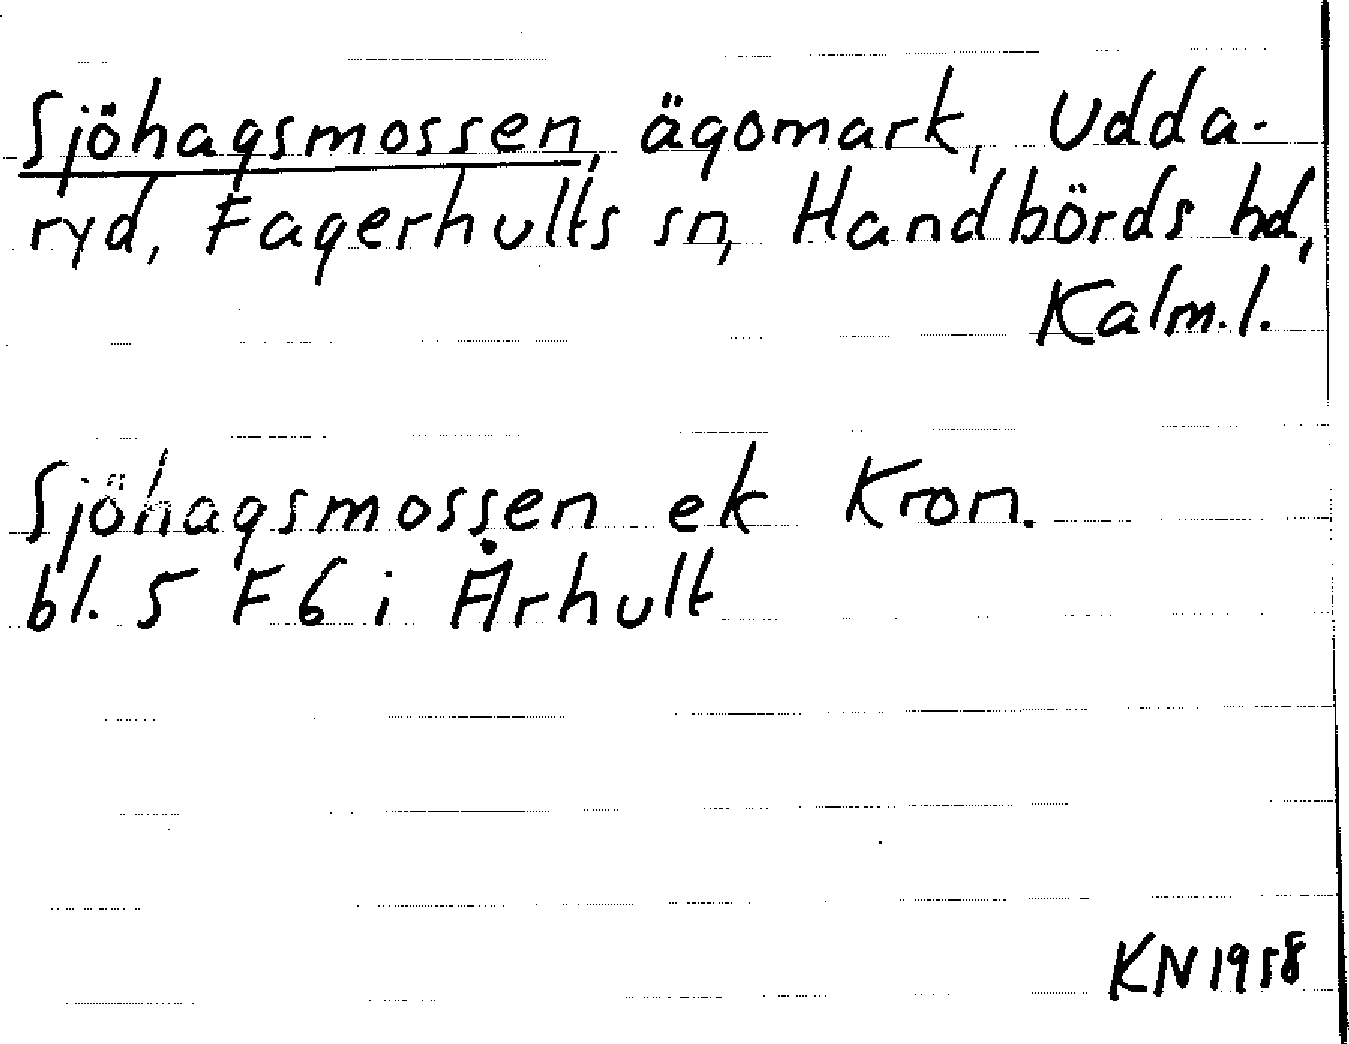 Sjöhagsmossen, ägomark, Udda-
ryd, Fagerhults sn, Handbörds hd,
Kalm.l.
Sjöhagsmossen ek Kron.
bl. 5 F 6 i Århult
KN 1958